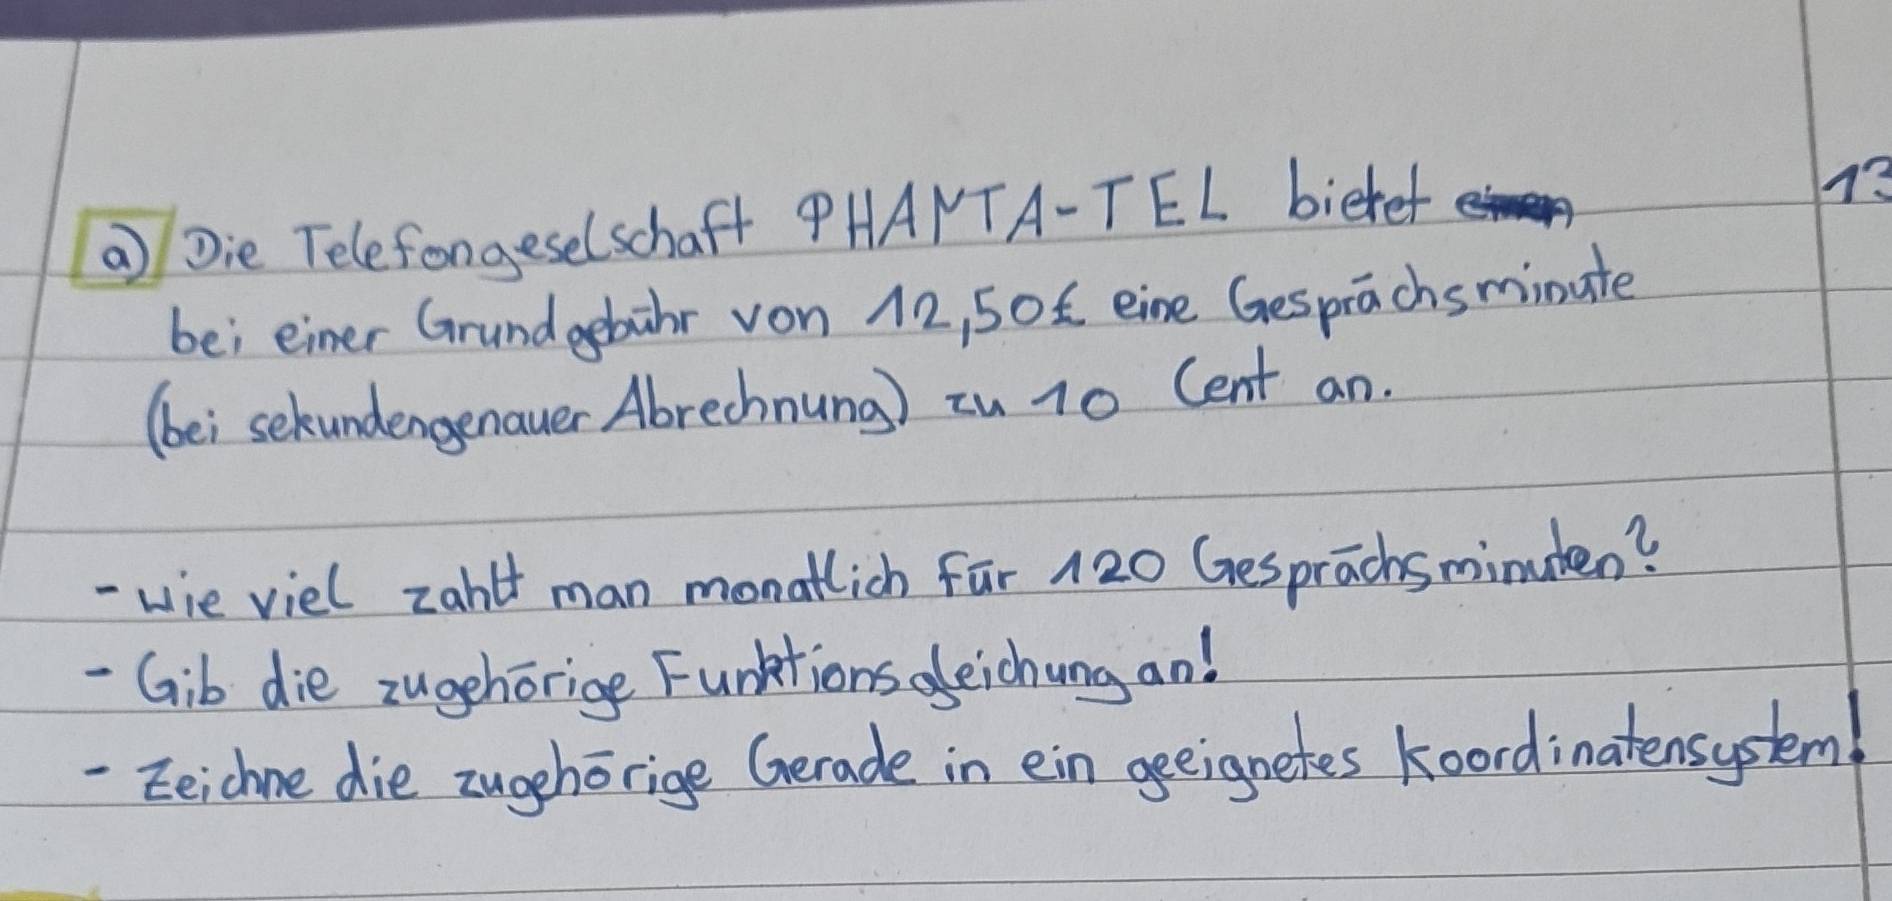 a) Die Telefongeselschaft PHANTA-TEL bietet
bei einer Grundgebühr von 12,50€ eine Gesprächsminute
(bei sekundengenauer Abrechnung) zu 10 Cent an.
- Wie viel zahlt man monatlich für 120 Gesprächsminuten?
- Gib die zugehörige Funktionsgleichung an!
- Zeichne die zugehörige Gerade in ein geeignetes Koordinatensystem!